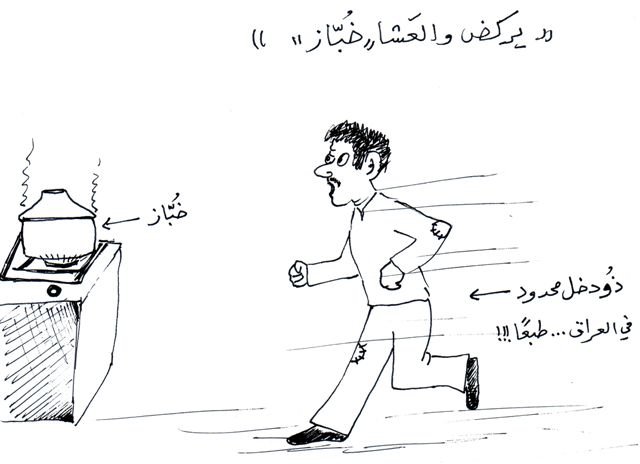 (( يركض والعَشا "خُبّاز" ))
خُبّاز
ذوُ دخل محدود
في العراق... طبعًا!!!